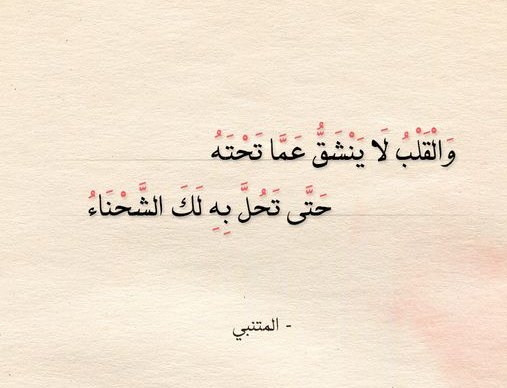 وَالْقَلْبُ لَا يَنْشَقُّ عَمَّا تَحْتَهُ
حَتَّى تَحُلَّ بِهِ لَكَ الشَّحْنَاءُ
- المتنبي